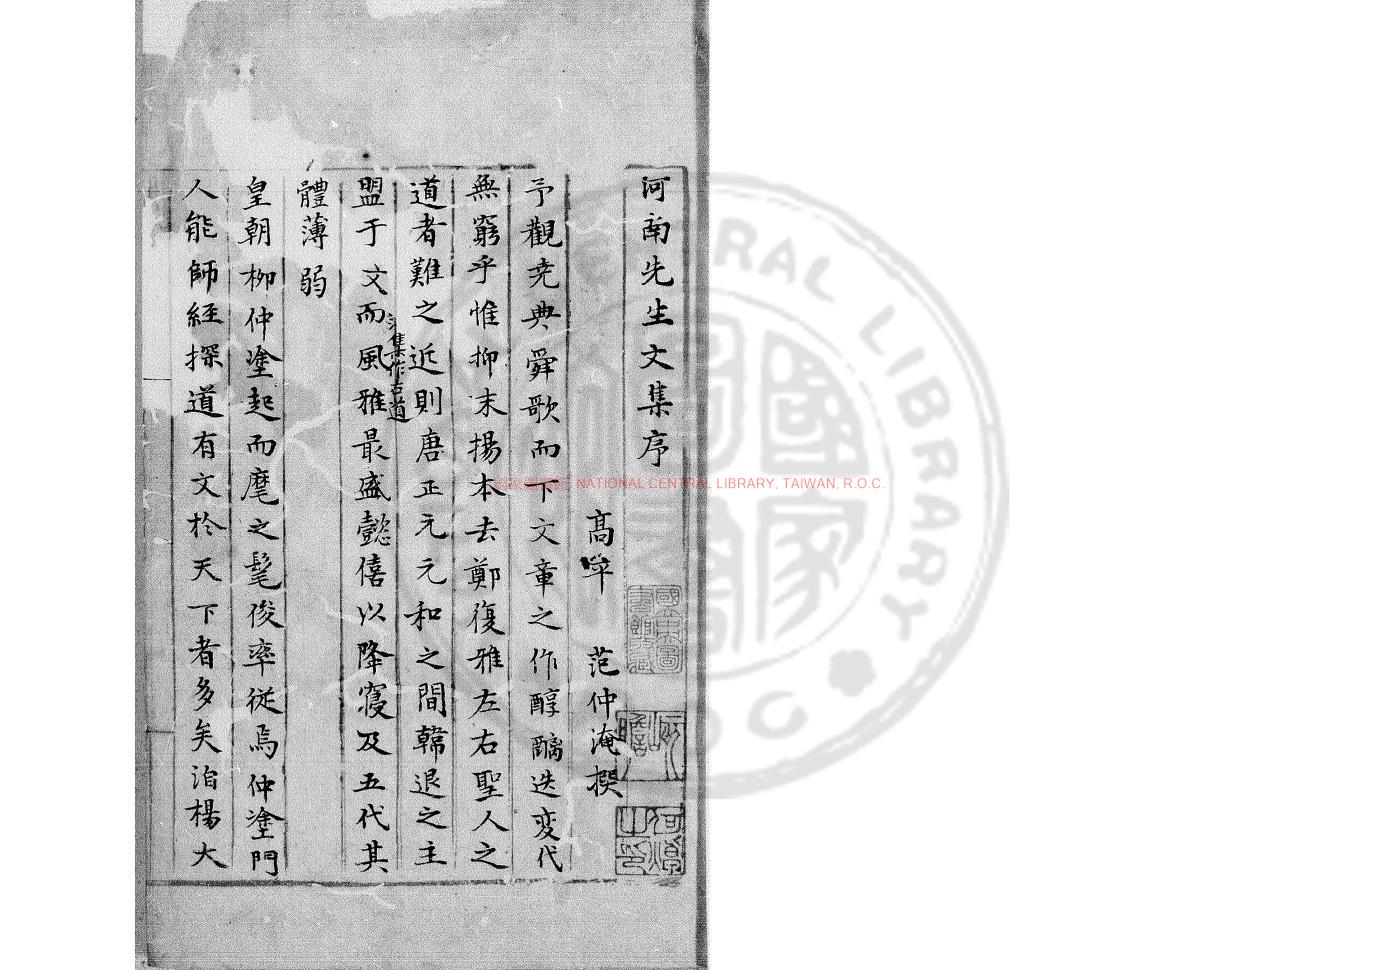 河南先生文集序
高平 范仲淹撰
予觀堯典舜歌而下文章之作醇醨迭変代
無窮乎惟抑末揚本去鄭復雅左右聖人之
道者難之近則唐正元元和之間韓退之主
盟于文而風雅最盛懿僖以降寖及五代其
集作古道
體薄弱
皇朝柳仲塗起而麾之髦俊率從焉仲塗門
人能師經探道有文於天下者多矣洎楊大
NATIONAL CENTRAL LIBRARY, TAIWAN, R.O.C.